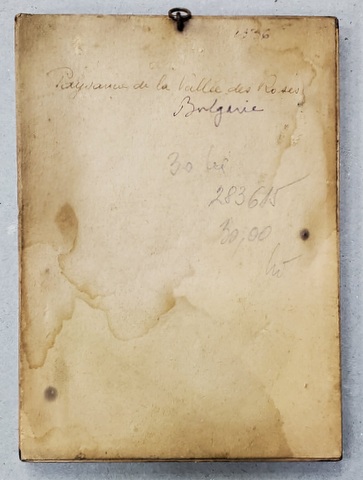 Paysanne de la Vallée des Roses
Bulgarie
30 lei
283615
30,00